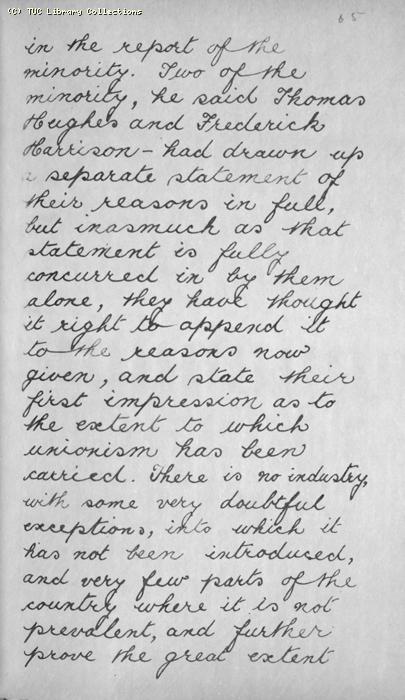 (C) TUC Library Collections
65
in the report of the
minority. Two of the
minority, he said Thomas
Hughes and Frederick
Harrison - had drawn up
a separate statement of
their reasons in full,
but inasmuch as that
statement is fully
concurred in by them
alone, they have thought
it right to append it
to the reasons now
given, and state their
first impression as to
the extent to which
unionism has been
carried. There is no industry,
with some very doubtful
exceptions, into which it
has not been introduced,
and very few parts of the
country where it is not
prevalent, and further
prove the great extent